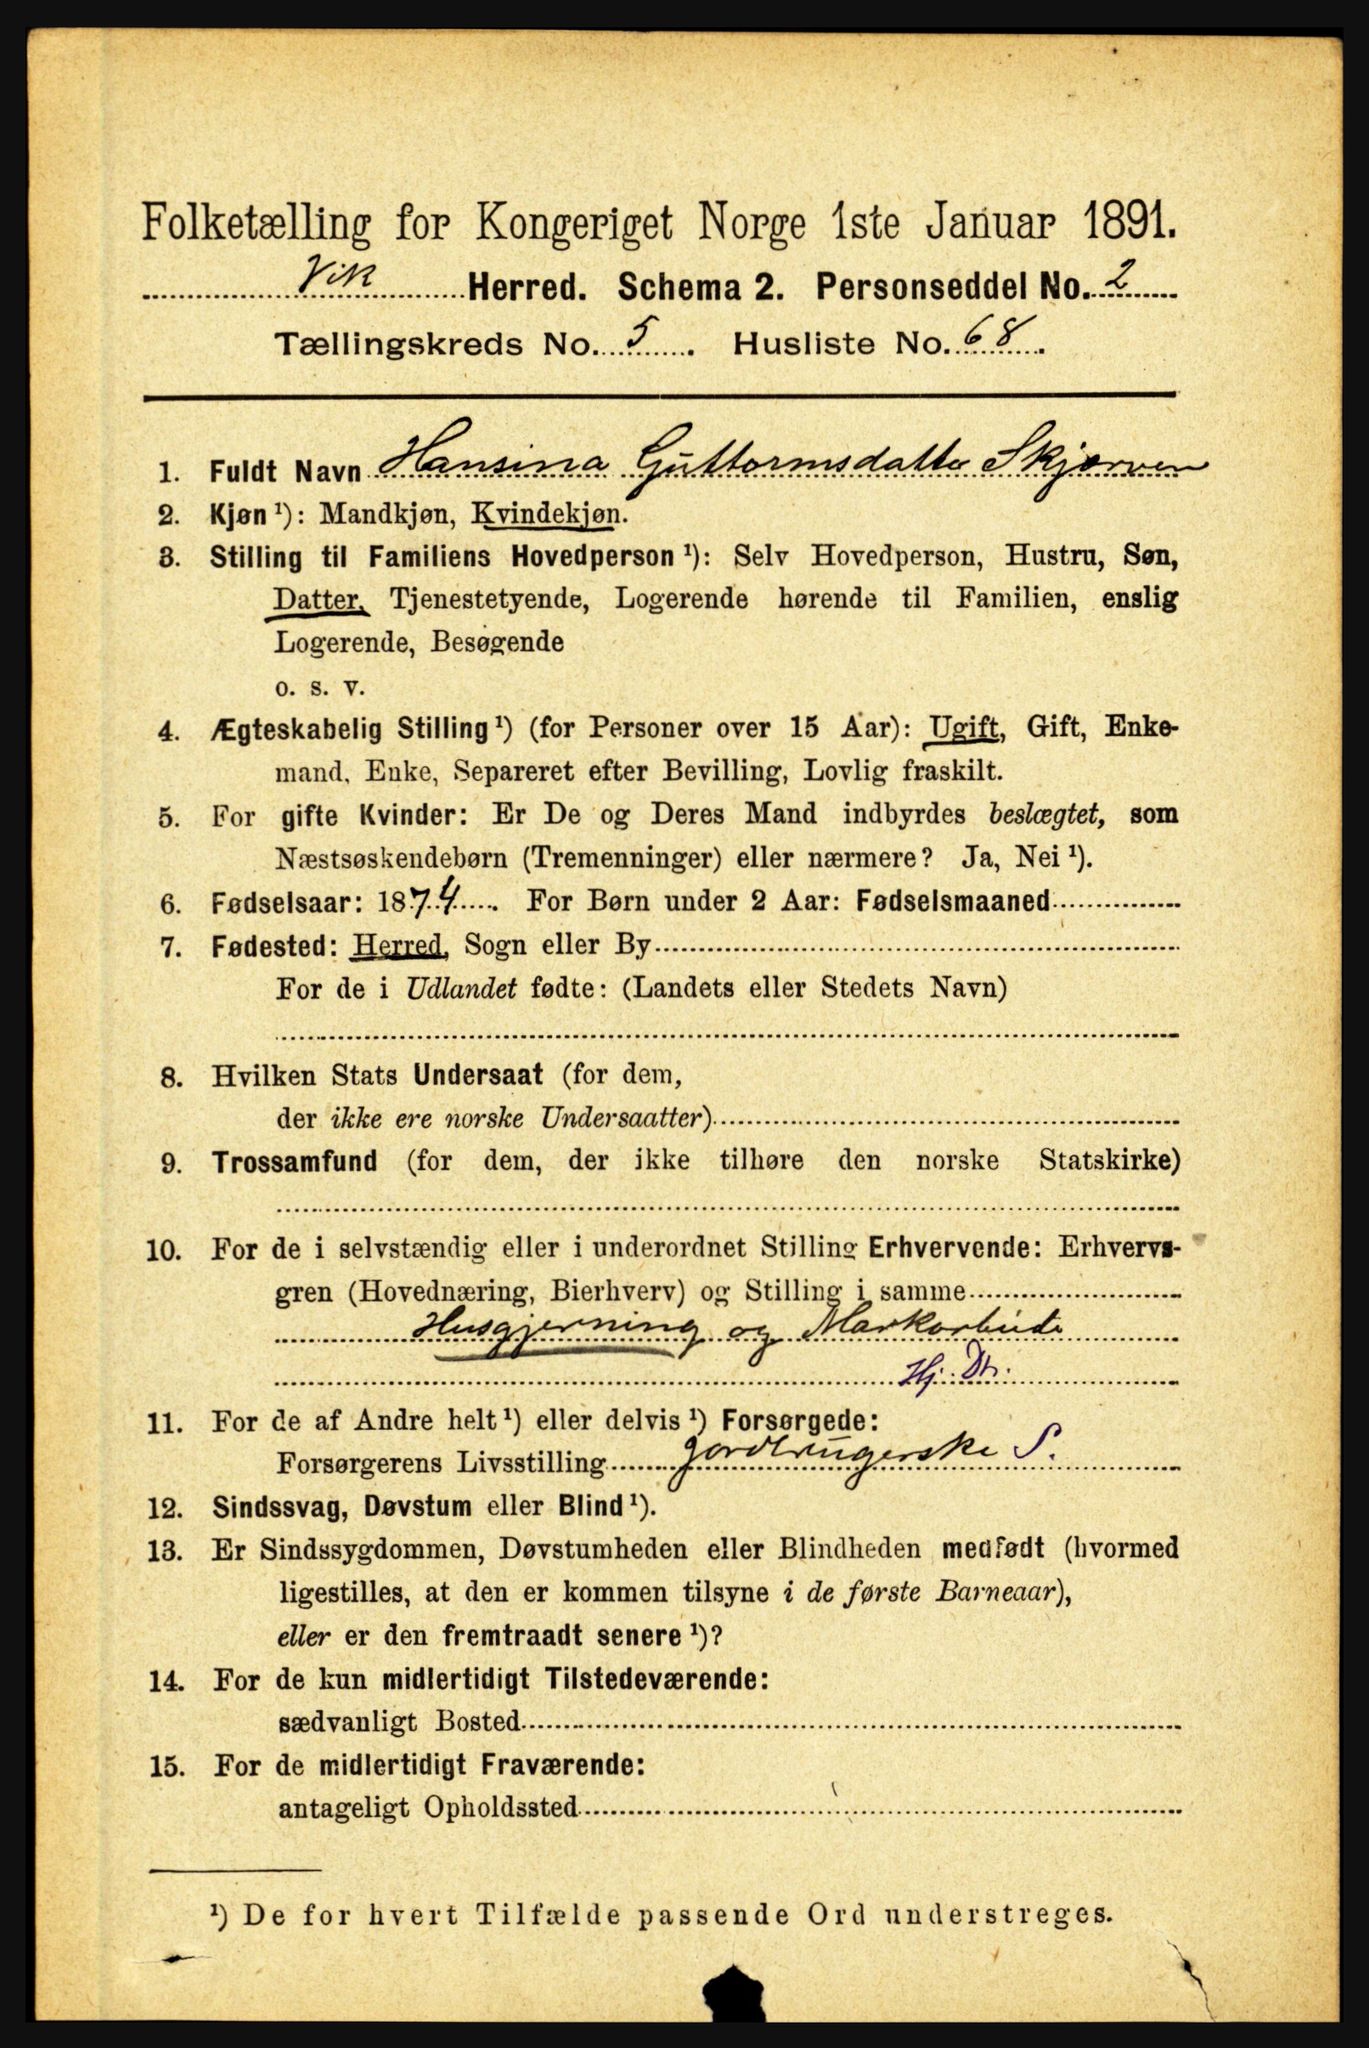 Folketælling for Kongeriget Norge 1ste Januar 1891.
Vik Herred. Schema 2. Personseddel No. 2
Tællingskreds No. 5. Husliste No. 68.
1. Fuldt Navn Hansina Guttormsdatter Skjørven
2. Kjøn ¹): Mandkjøn, Kvindekjøn.
3. Stilling til Familiens Hovedperson ¹): Selv Hovedperson, Hustru, Søn,
Datter, Tjenestetyende, Logerende hørende til Familien, enslig
Logerende, Besøgende
o. s. v.
4. Ægteskabelig Stilling ¹) (for Personer over 15 Aar): Ugift, Gift, Enke-
mand, Enke, Separeret efter Bevilling, Lovlig fraskilt.
5. For gifte Kvinder: Er De og Deres Mand indbyrdes beslægtet, som
Næstsøskendebørn (Tremenninger) eller nærmere? Ja, Nei ¹).
6. Fødselsaar: 1874. For Børn under 2 Aar: Fødselsmaaned
7. Fødested: Herred, Sogn eller By
For de i Udlandet fødte: (Landets eller Stedets Navn)
8. Hvilken Stats Undersaat (for dem,
der ikke ere norske Undersaatter)
9. Trossamfund (for dem, der ikke tilhøre den norske Statskirke)
10. For de i selvstændig eller i underordnet Stilling Erhvervende: Erhvervs-
gren (Hovednæring, Bierhverv) og Stilling i samme
Husgjerning og Markarbeide
Hj. Dtr.
11. For de af Andre helt ¹) eller delvis ¹) Forsørgede:
Forsørgerens Livsstilling Jordbrugerske S.
12. Sindssvag, Døvstum eller Blind ¹).
13. Er Sindssygdommen, Døvstumheden eller Blindheden medfødt (hvormed
ligestilles, at den er kommen tilsyne i de første Barneaar),
eller er den fremtraadt senere ¹)?
14. For de kun midlertidigt Tilstedeværende:
sædvanligt Bosted
15. For de midlertidigt Fraværende:
antageligt Opholdssted
¹) De for hvert Tilfælde passende Ord understreges.